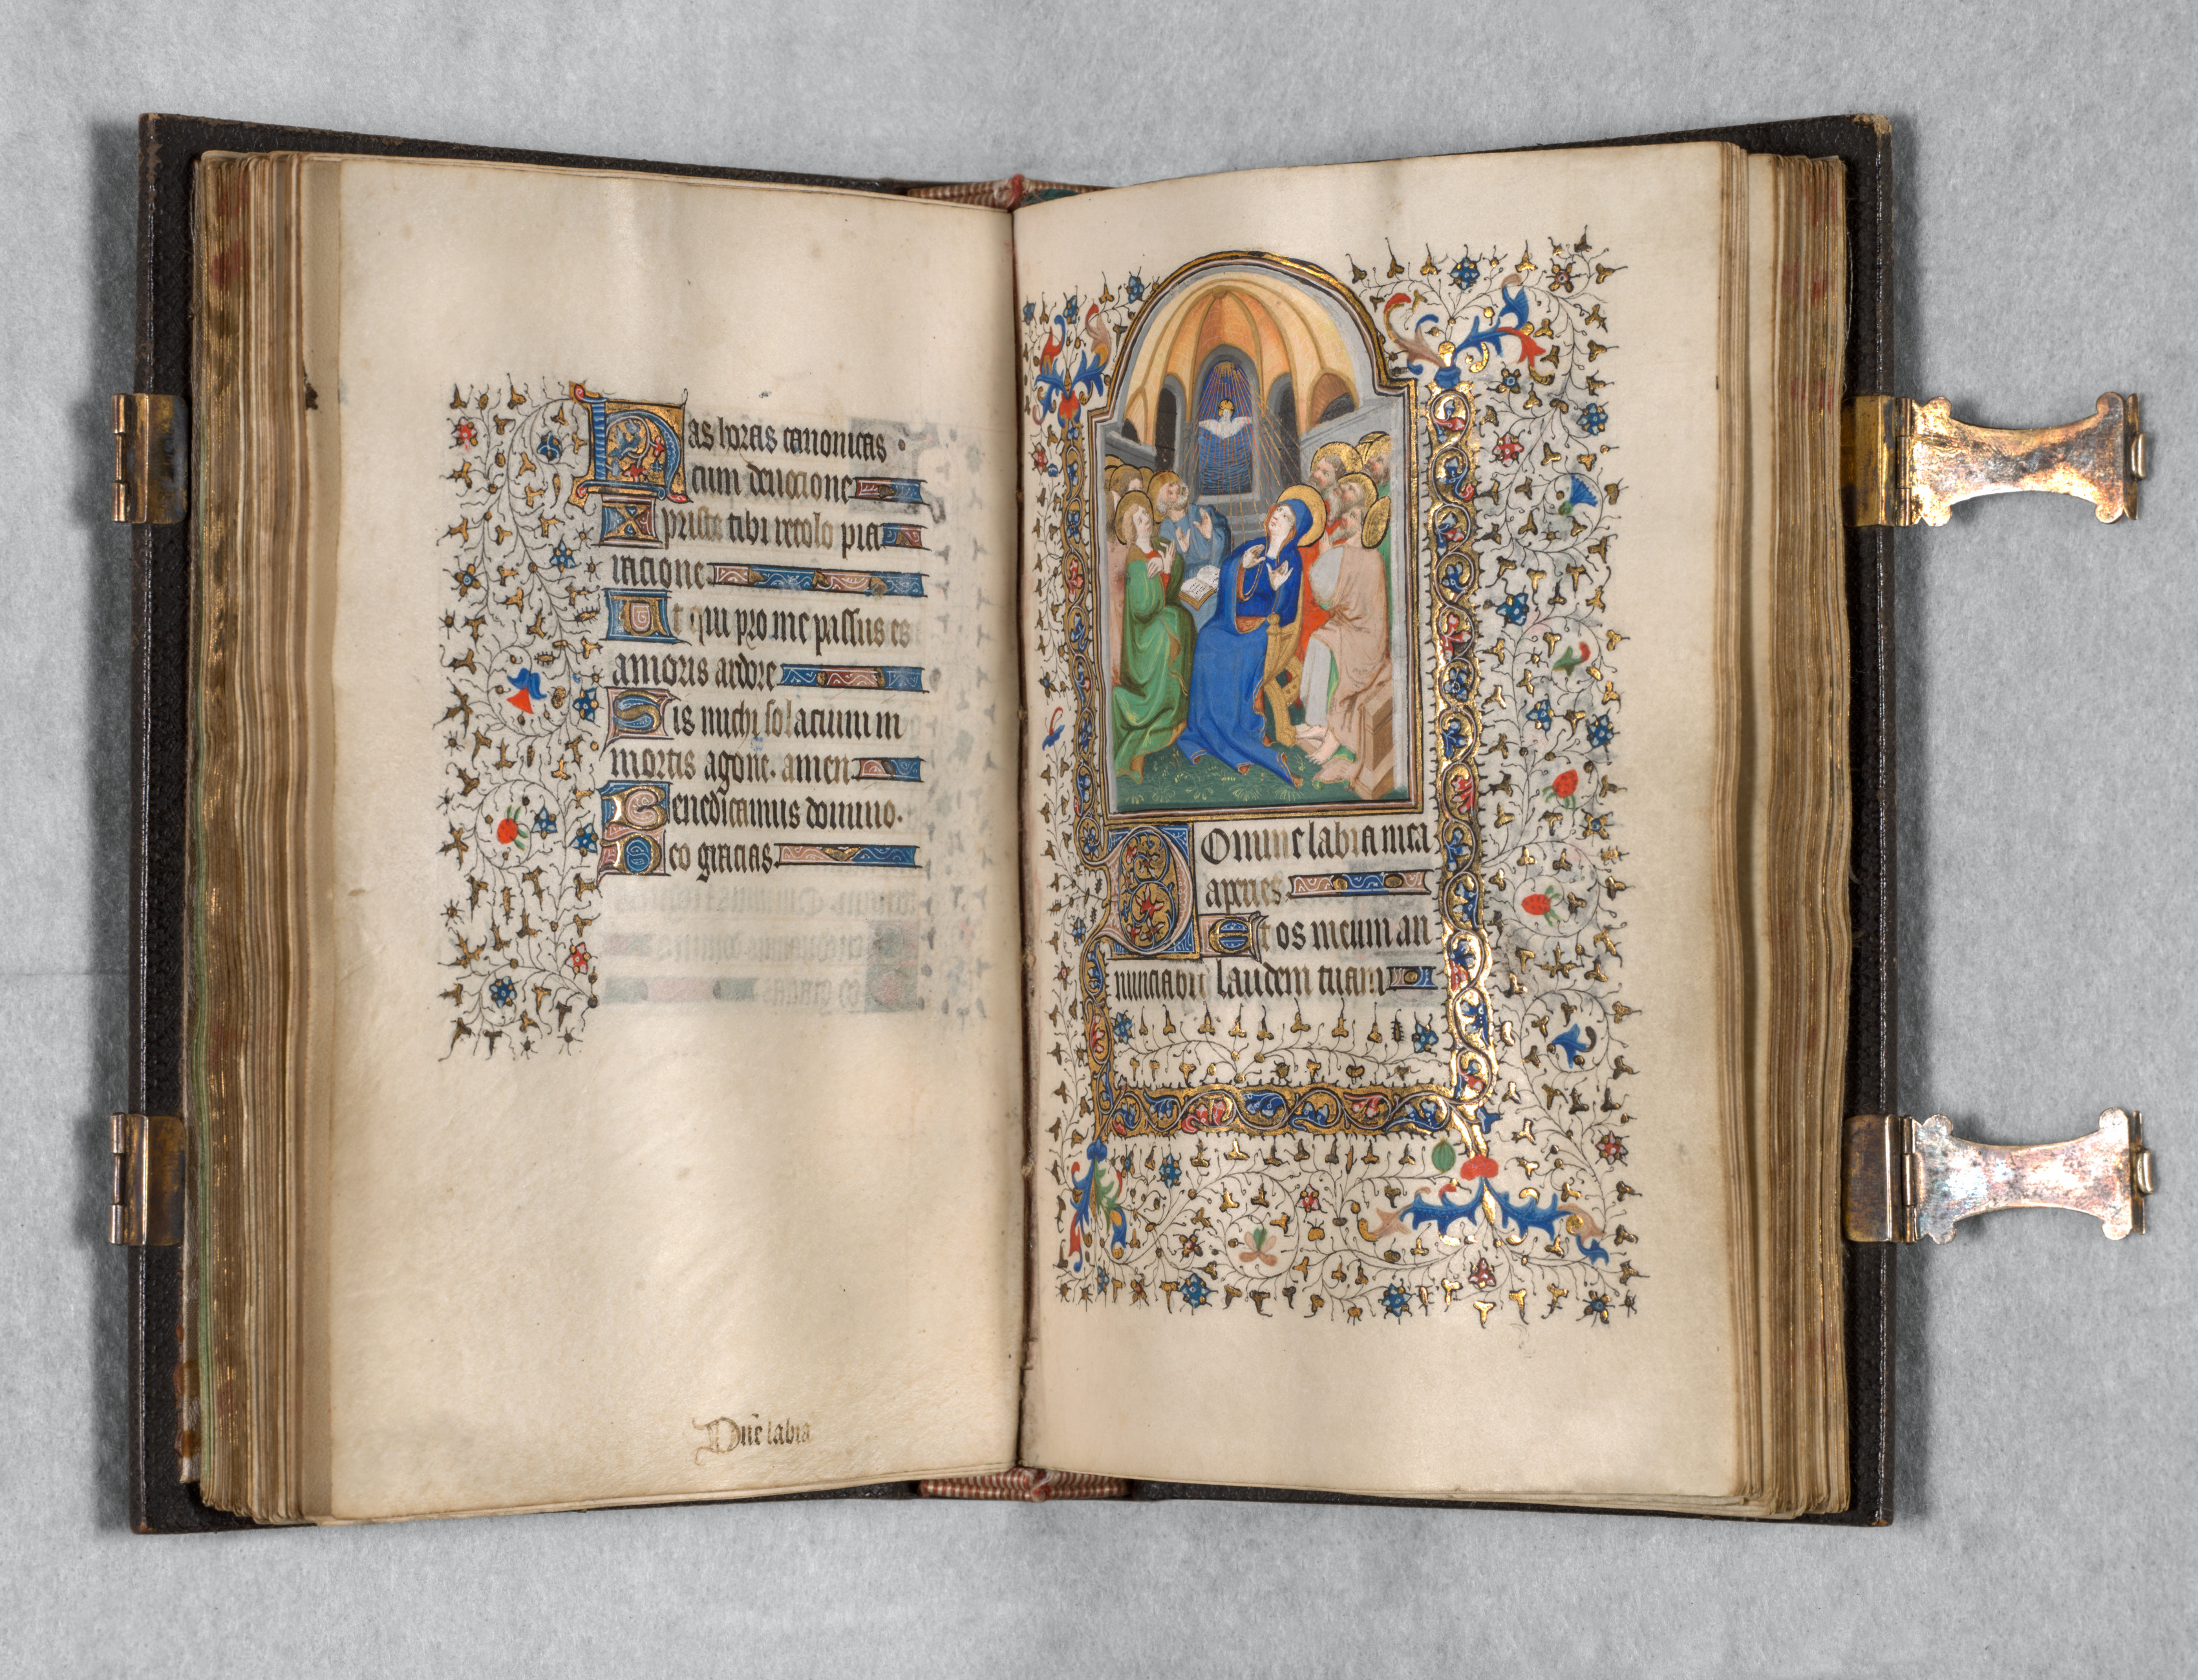 Has horas canonicas
cum deuocione
Xpriste tibi recolo pia
racione
Ut qui pro me passus es
amoris ardore
Sis michi solacium in
mortis agone. amen
Benedicamus domino.
Deo gracias
Dñe labia
Domine labia mea
aperies
Et os meum an
nunciabit laudem tuam